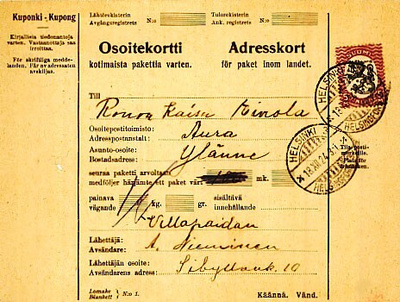 Kuponki - Kupong
Kirjallisia tiedonantoja
varten. Vastaanottaja saa
irroittaa.
För skriftliga medde-
landen. Får av adressaten
avskiljas.
Lähtörekisterin
Avgångsregistrets
N:o
Tulorekisterin
Ank. registrets
N:o
Osoitekortti
kotimaista pakettia varten.
Adresskort
för paket inom landet.
Till
Rouva Kaisu Einola
Osoitepostitoimisto:
Adresspostanstalt:
Aura
Asunto-osoite:
Bostadsadress:
Yläane
seuraa paketti arvoltaan
medföljer härjämte ett paket värt
mk.
painava
vägande
kg.
gr.
sisältävä
innehållande
Villapaidan
Lähettäjä:
Avsändare:
A. Nieminen
Lähettäjän osoite:
Avsändarens adress:
Sibyllank. 10
Lomake
Blankett
N:o 1.
Käännä. Vänd.
HELSINKI
HELSINGFORS
HELSINKI
18.XII.24
HELSINGFORS